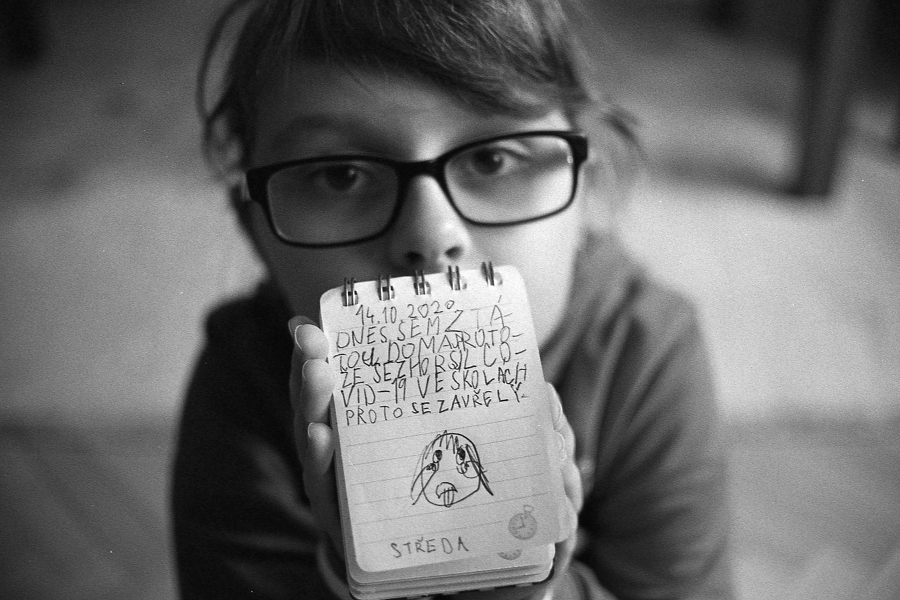 14.10.2020
DNES SEM Z TÁ-
TOU DOMA PROTO-
ŽE SE ZHORŠIL CO-
VID-19 VE ŠKOLÁCH
PROTO SE ZAVŘELY.
STŘEDA